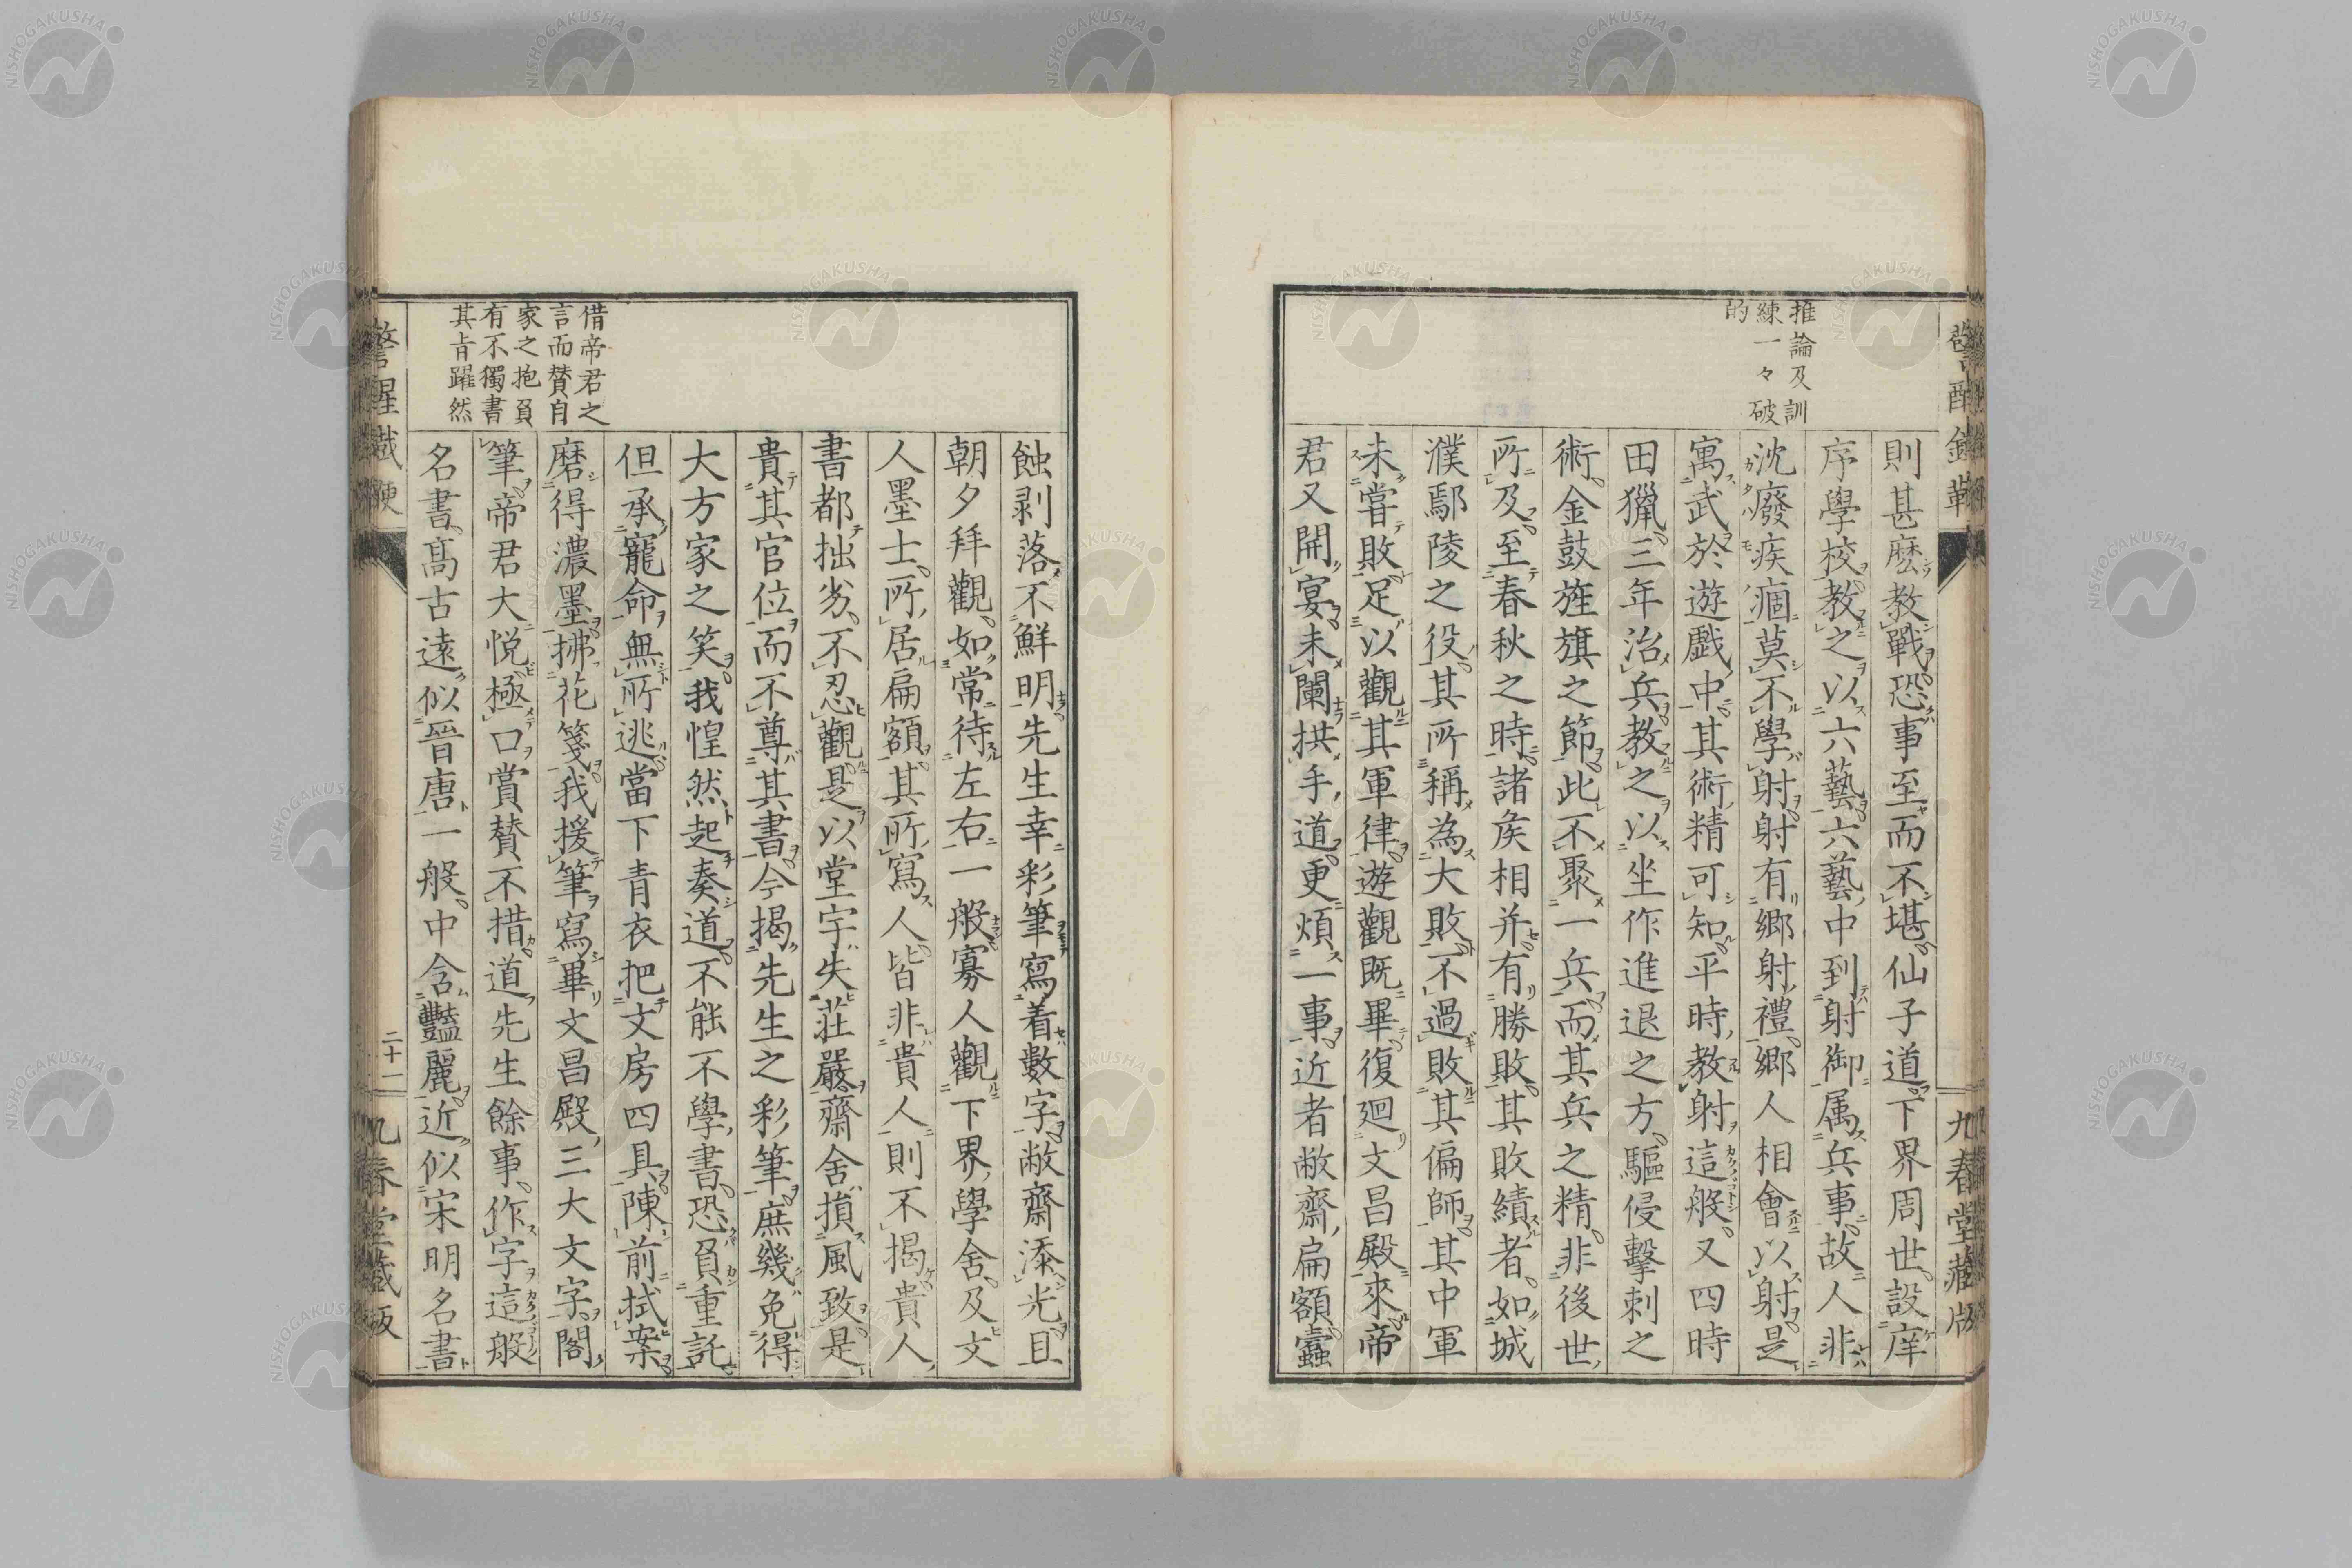 推論及訓
練一々破
的
則甚麽教戰恐事至而不堪仙子道下界周世設庠
序學校教之以六藝六藝中到射御属兵事故人非
沈廢疾痼莫不學射射有鄉射禮鄉人相會以射是
寓武於遊戲中其術精可知平時教射這般又四時
田獵三年治兵教之以坐作進退之方驅侵擊刺之
術金鼓旌旗之節此不聚一兵而其兵之精非後世
所及至春秋之時諸矦相并有勝敗其敗績者如城
濮鄢陵之役其所稱為大敗不過敗其偏師其中軍
未嘗敗足以觀其軍律遊觀既畢復廻文昌殿來帝
君又開宴未闌拱手道更煩一事近者敝齋扁額蠹
九春堂藏版
借帝君之
言而賛自
家之抱負
有不獨書
其肯躍然
蝕剥落不鮮明先生幸彩筆寫着數字敝齋添光且
朝夕拜觀如常待左右一般寡人觀下界學舍及文
人墨士所居扁額其所寫人皆非貴人則不揭貴人
書都拙劣不忍觀是以堂宇失莊嚴齋舍損風致是
貴其官位而不尊其書今揭先生之彩筆庶幾免得
大方家之笑我惶然起奏道不能不學書恐負重託
但承寵命無所逃當下青衣把文房四具陳前拭案
磨得濃墨拂花箋我援筆寫畢文昌殿三大文字閣
筆帝君大悦極口賞賛不措道先生餘事作字這般
名書高古遠似晉唐一般中含豔麗近似宋明名書
二十一
九春堂藏版